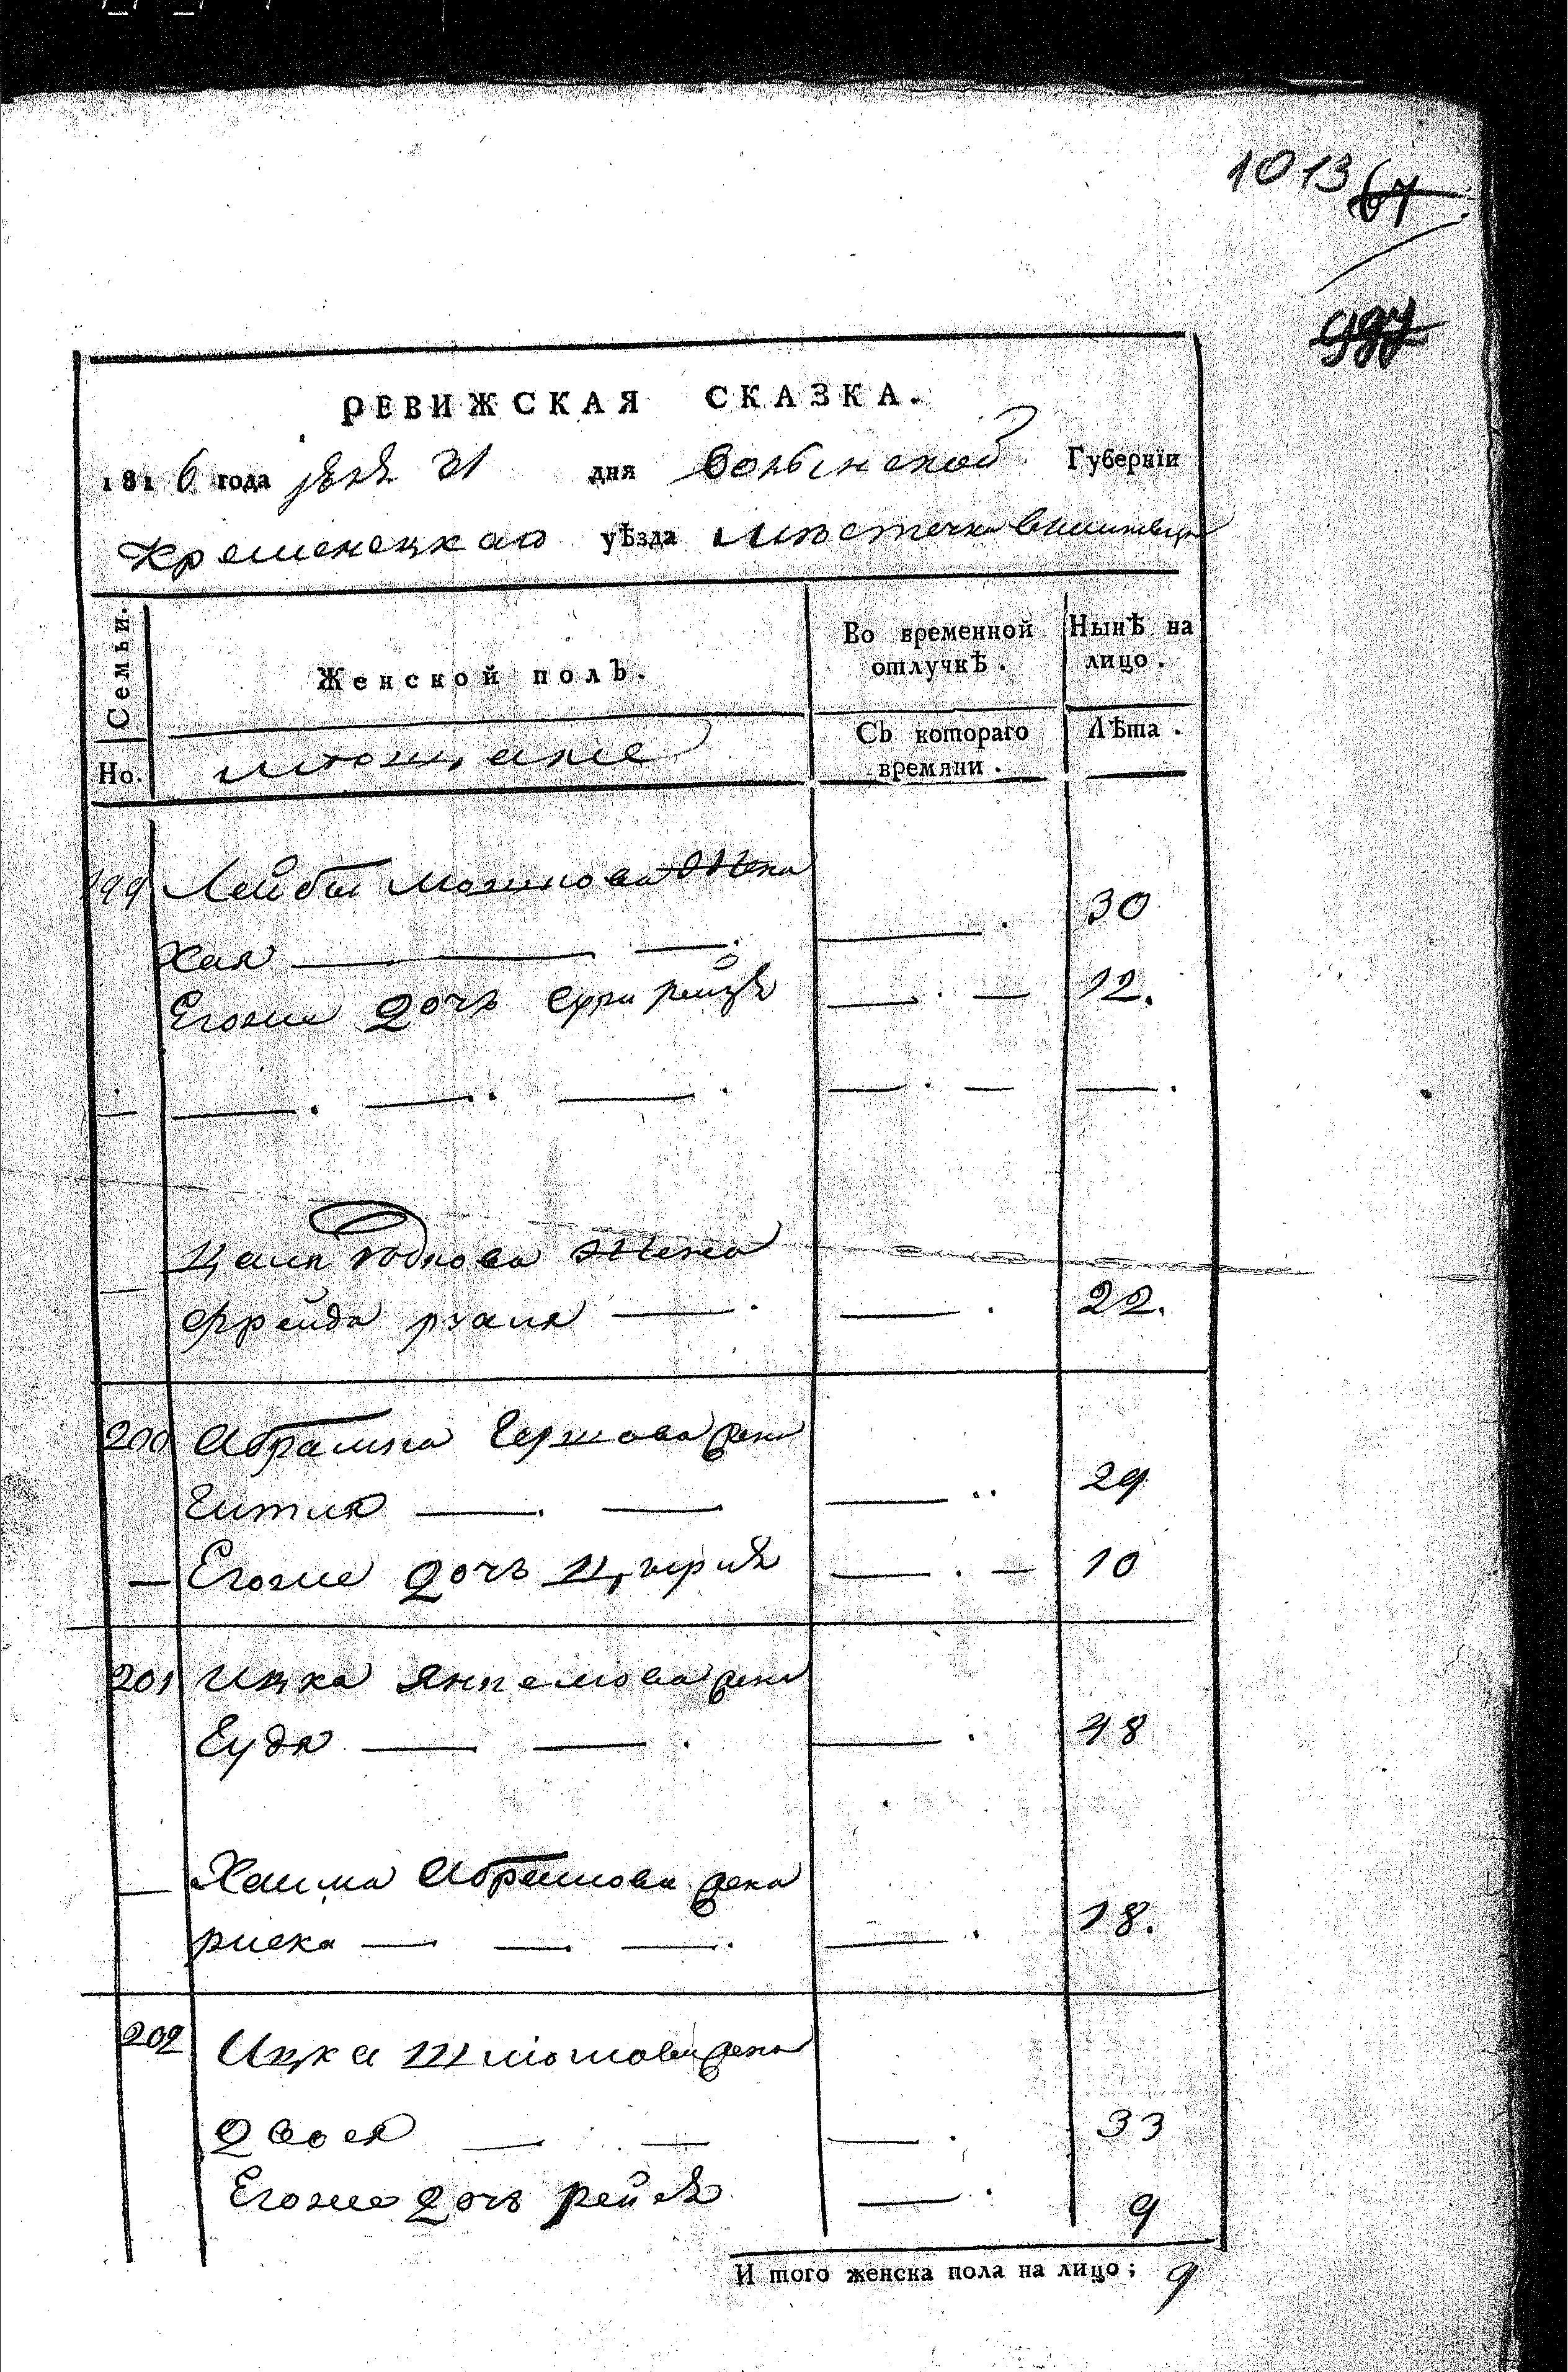 1013 67
РЕВИЖСКАЯ СКАЗКА.
1816 года 31 дня Волынской Губернїи
Кременецкаго уѣзда местечка
Семьи. Женской полЪ. Во временной отлучкѣ. Нынѣ на лицо.
Но. Съ котораго времяни. Лѣта.
199 Лейбы Мошкова Жена
Хая — — . — . 30
Егоже дочь Сура Рейзя — . — 12.
— — . — . — . — . — — .
— Жена
Фрейда — . — . 22.
200 Абрамка Гершкова жена
Гитля — . — — .. 29
— Егоже дочь — . — 10
201 Ицка Янкелиова жена
Еудя — — . — . 48
— Хаима Абрамова жена
риска — — . — . — . 18.
202 Ицка Шмiолова жена
Двося — . — — . 33
Егоже дочь рейзя — . 9
И того женска пола на лицо; 9